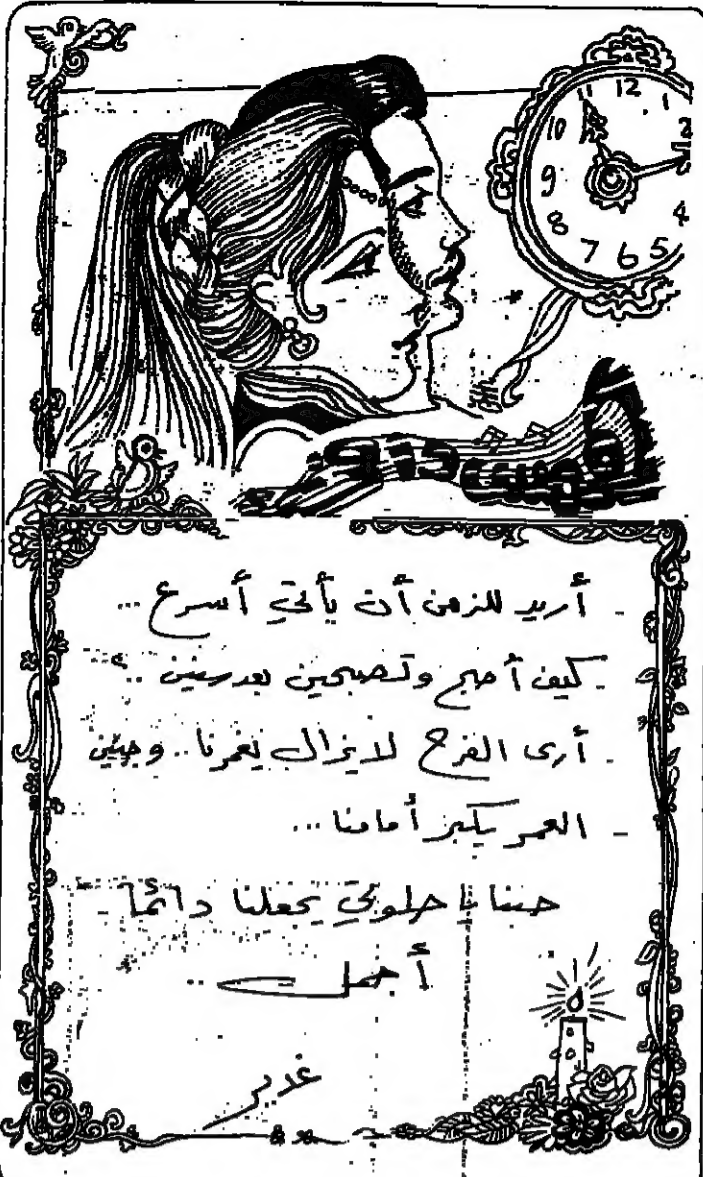 12
11
1
10
2
9
8
4
7
6
5
- أريد للزمن أن يأتي أسرع ...
- كيف أصبح وتصبحين بعد سنين ..
- أرى الفرح لا يزال يغمرنا .. وجنين
- العمر يكبر أمامنا ...
حبنا يا حلوتي يجعلنا دائماً
أجمل ..
غدير